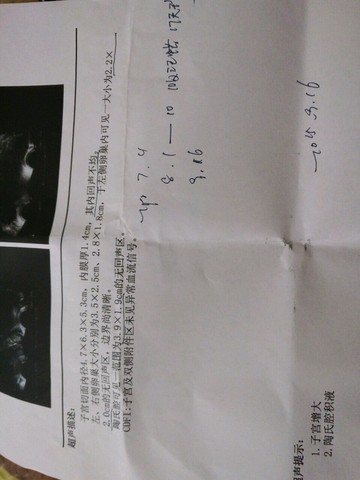 超声描述:
子宫切面内径4.7×6.3×5.3cm, 内膜厚1.4cm, 其内回声不均。
左、右侧卵巢大小分别为3.5×2.5cm、2.8×1.8cm, 于左侧卵巢内可见一大小为2.2×
2.0cm的无回声区, 边界尚清晰。
陶氏腔可见一范围为3.9×1.9cm的无回声区。
CDFI:子宫及双侧附件区未见异常血流信号。
7.4
8.1—10
9.16
9.16
声提示:
1. 子宫增大
2. 陶氏腔积液